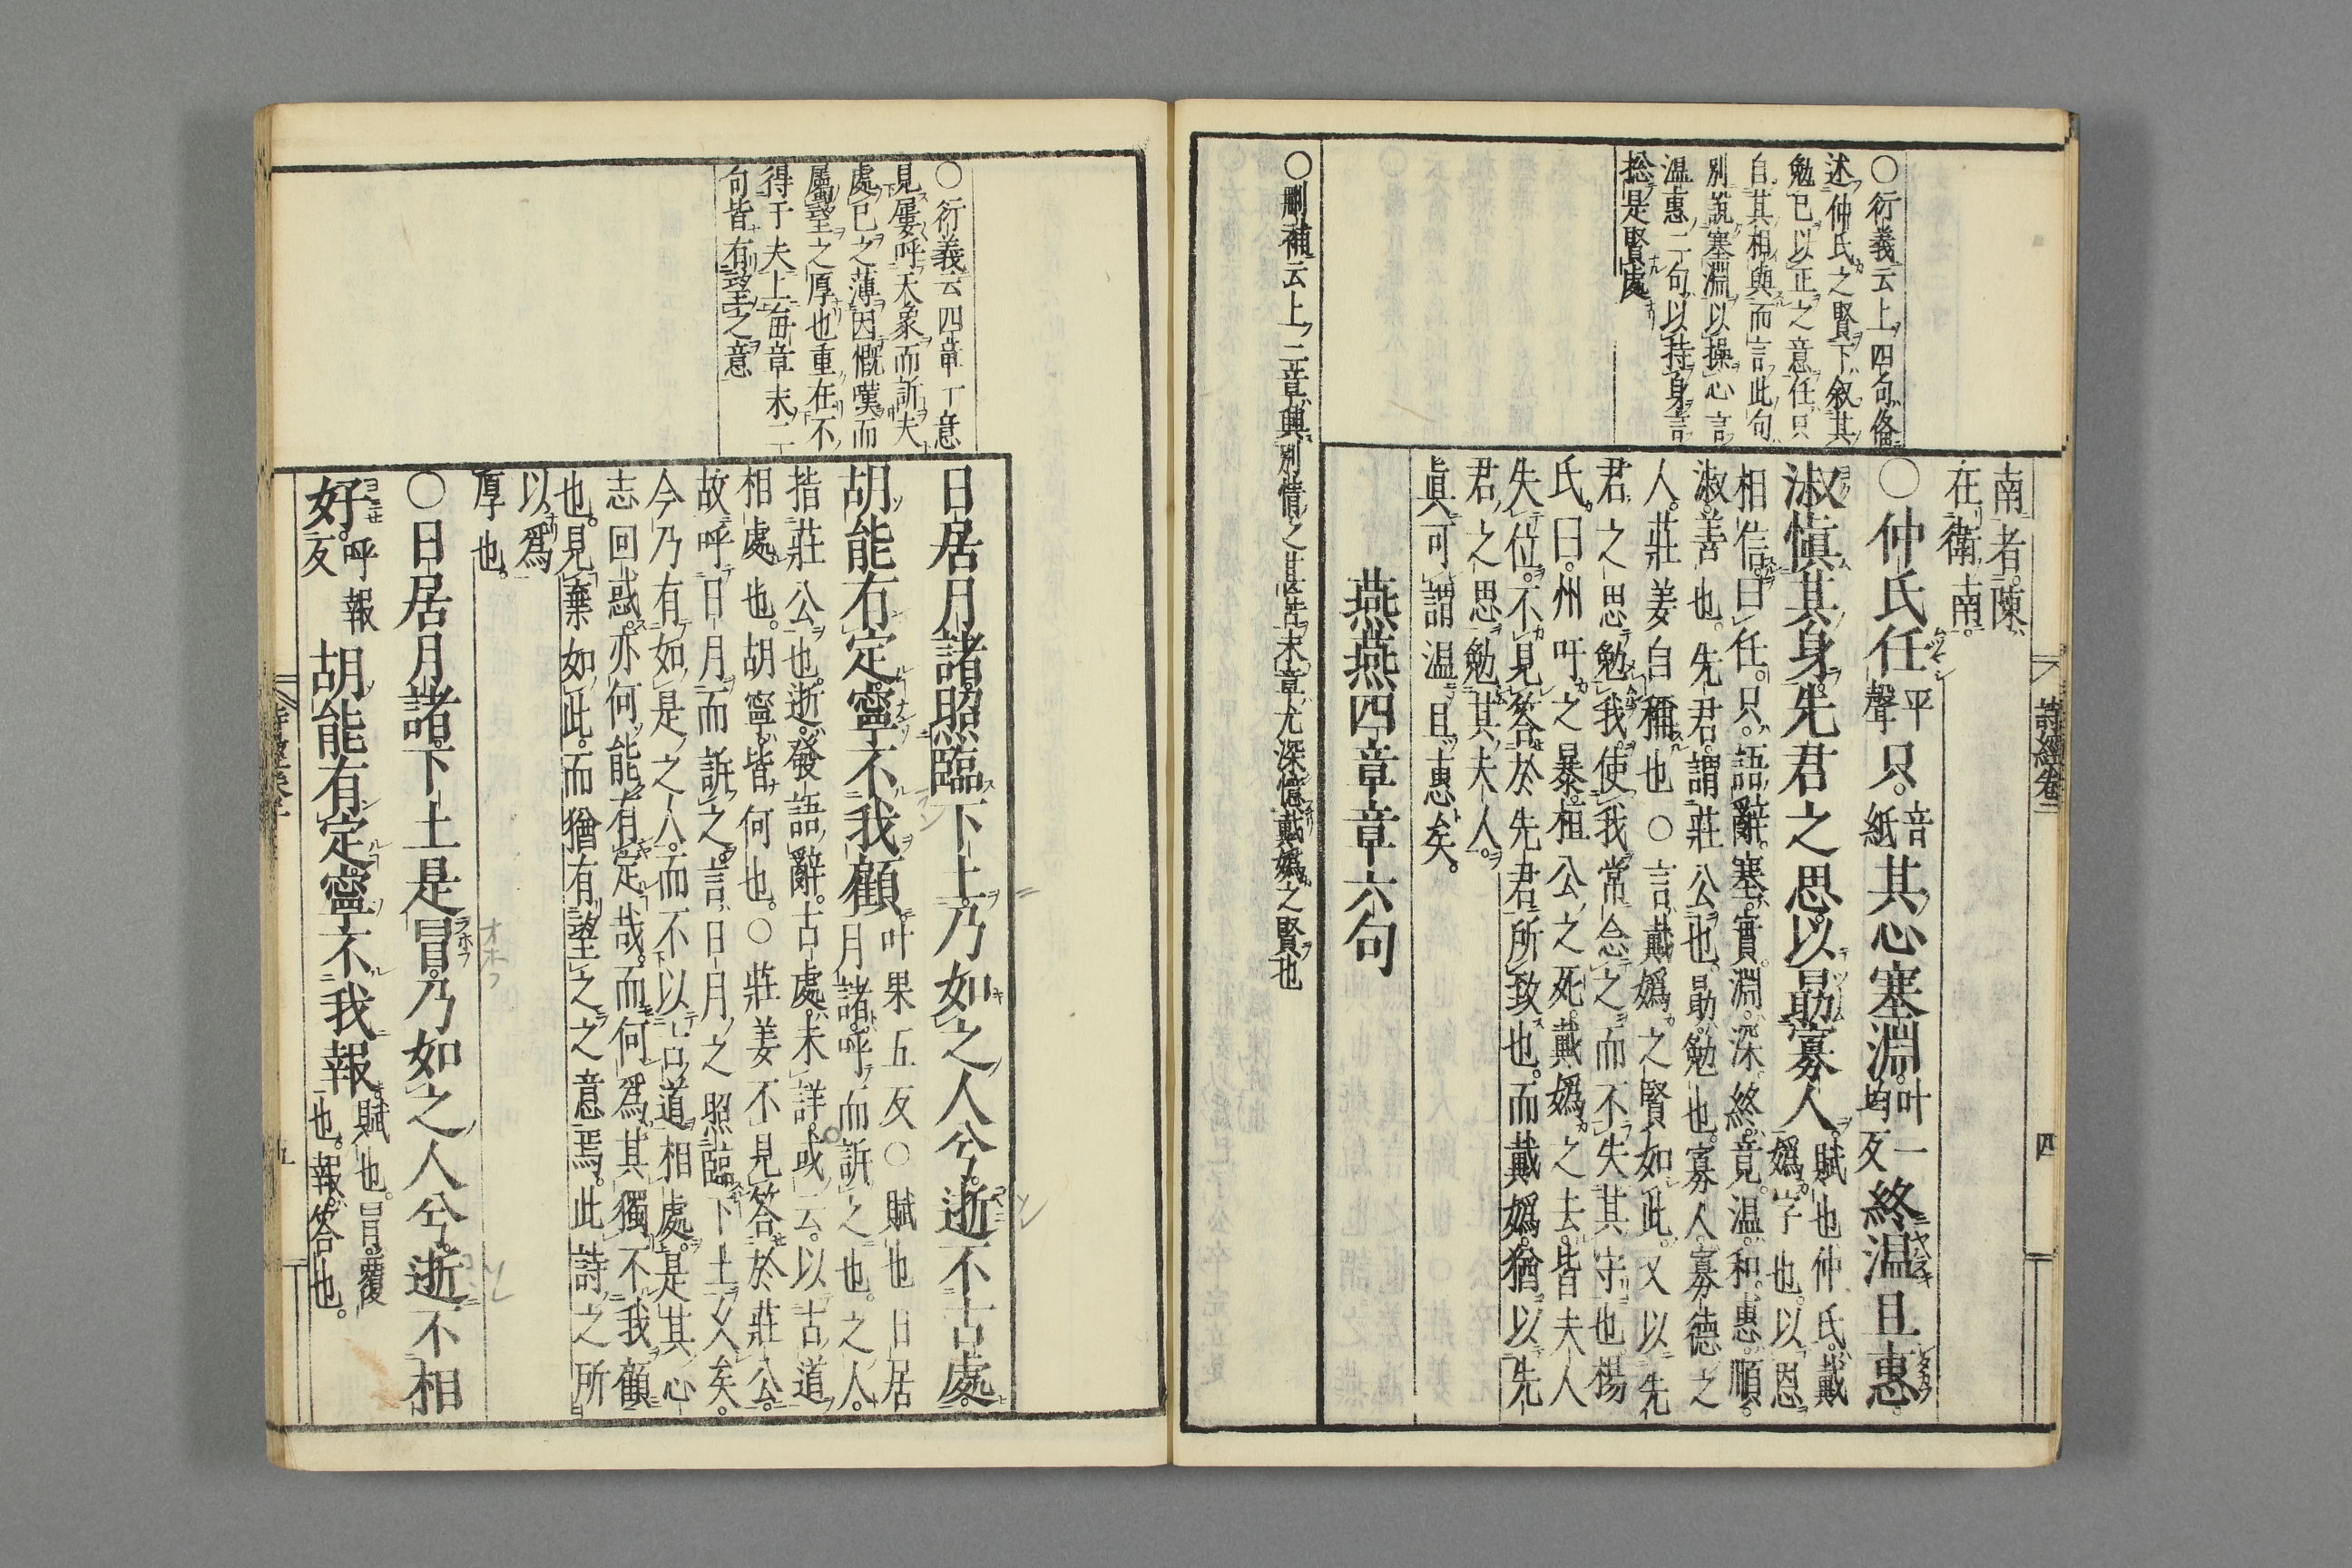 詩經卷二
四
○衍義云上四句俻
述仲氏之賢下叙其
勉已以正之意任只
自其相與而言此句
別説塞淵以操心言
温惠二句以持身言
捴是賢處
南者。陳
在衛南。
○仲氏任平聲只。音紙其心塞淵。叶一均反終温且惠。
淑愼其身。先君之思。以勗寡人。賦也仲氏。戴嬀字也。以恩
相信。曰任。只。語辭。塞。實。淵。深。終。竟。温。和。惠。順。
淑。善也。先君。謂莊公也。勗。勉也。寡人。寡德之
人。莊姜自稱也○言戴嬀之賢如此。又以先
君之思勉我。使我常念之而不失其守也楊
氏。曰。州吁之暴。桓公之死。戴嬀之去。皆夫人
失位。不見答於先君所致也。而戴嬀。猶以先
君之思勉其夫人。
眞可謂温且惠矣。
燕燕四章章六句
○刪補云上三章興別情之甚苦末章尤深憶戴嬀之賢也
○衍義云四章一意
見屢呼天象而訴夫
處已之薄因慨嘆而
屬望之厚也重在不
得于夫上每章末二
句皆有望之意
日居月諸。照臨下土。乃如之人兮。逝不古處。
胡能有定。寧不我顧。叶果五反○賦也日居月諸。呼而訴之也。之人。
指莊公也。逝。發語辭。古處。未詳。或云。以古道
相處也。胡寧。皆何也。○莊姜不見答於莊公。
故呼日月而訴之。言日月之照臨下土久矣。
今乃有如是之人。而不以古道相處。是其心
志回惑。亦何能有定哉。而何爲其獨不我顧
也。見棄如此。而猶有望之之意焉。此詩之所
以爲
厚也。
○日居月諸。下土是冒。乃如之人兮。逝不相
好。呼報反胡能有定。寧不我報。賦也。冒。覆也。報。答也。
五